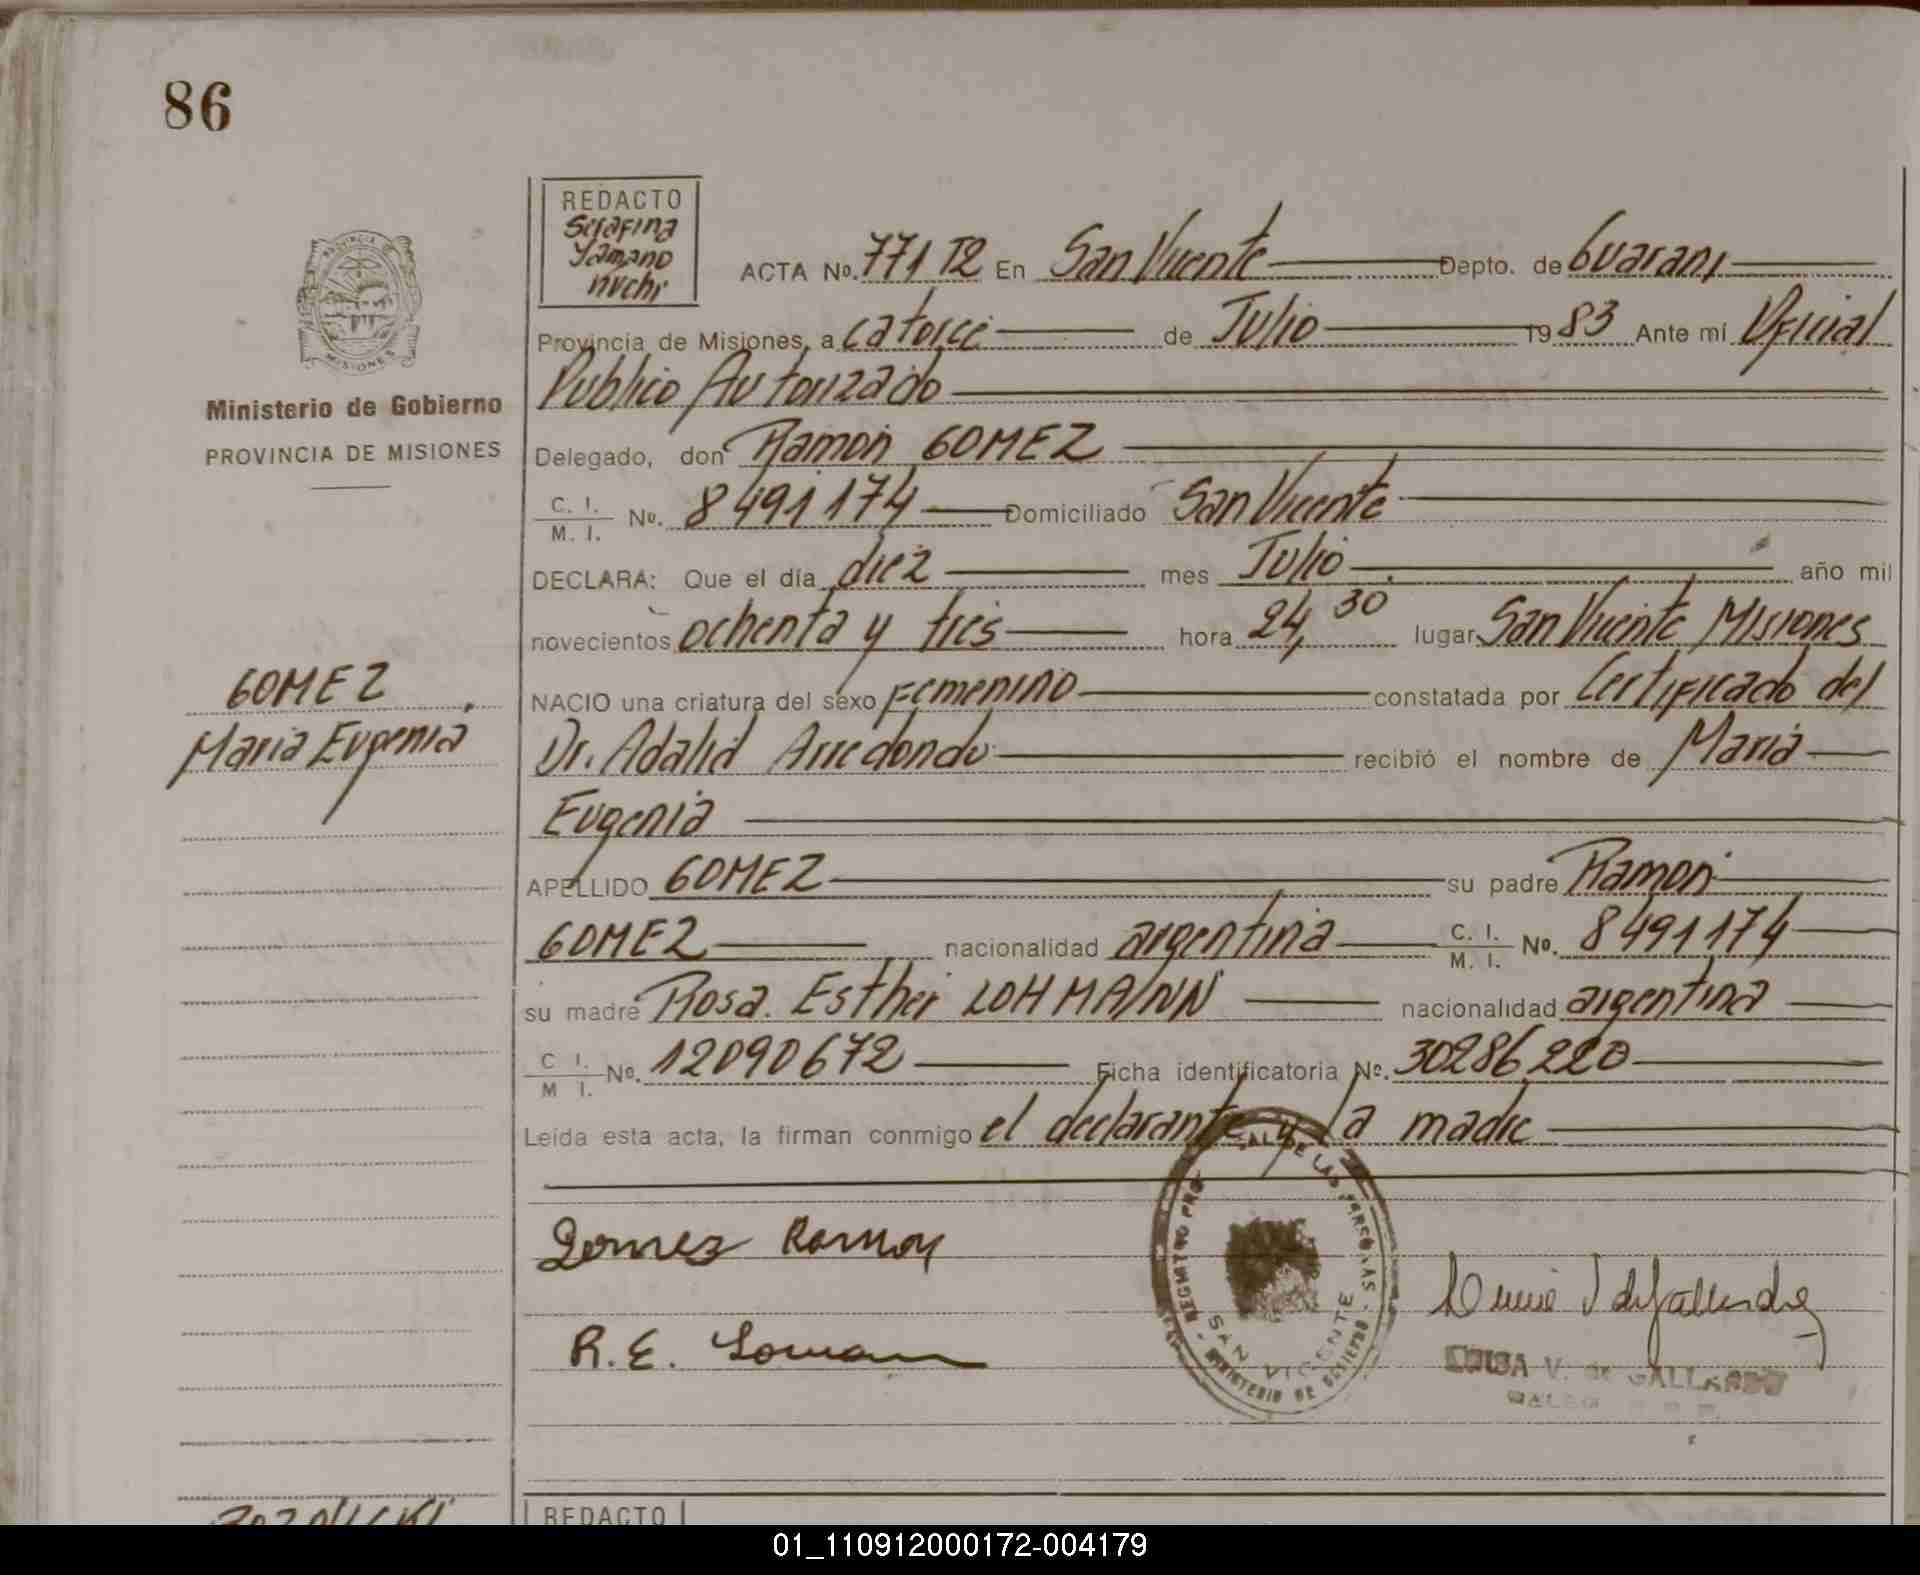 86
REDACTO
Serafina
Yamano
nuchi
PROVINCIA DE
MISIONES
Ministerio de Gobierno
PROVINCIA DE MISIONES
ACTA No. 771 T2 En San Vicente Depto. de Guarani
Provincia de Misiones, a catorce de Julio 1983 Ante mí Oficial
Publico Autorizado
Delegado, don Ramon GOMEZ
C. I.
M. I. No. 8491174 Domiciliado San Vicente
DECLARA: Que el día diez mes Julio año mil
novecientos ochenta y tres hora 24,30 lugar San Vicente Misiones
NACIO una criatura del sexo Femenino constatada por Certificado del
Dr. Adalid Arredondo recibió el nombre de Maria
Eugenia
GOMEZ
Maria Eugenia
APELLIDO GOMEZ su padre Ramon
GOMEZ nacionalidad argentina C. I.
M. I. No. 8491174
su madre Rosa Esther LOHMANN nacionalidad argentina
C I.
M I. No. 12090672 Ficha identificatoria No. 30286220
Leída esta acta, la firman conmigo el declarante y la madre
Gomez Ramon
R. E. Lomann
SAN VICENTE
MINISTERIO DE GOBIERNO
LUISA V. de GALLARDO
REDACTO
01_110912000172-004179